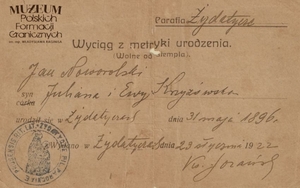 MUZEUM
Polskich
Formacji
Granicznych
Parafia Żydatycze
Wyciąg z metryki urodzenia.
(Wolne od stempla).
Jan Noworolski
syn Juliana i Ewy Krzyżówska
córka
urodził się w Żydatyczach dnia 31 maja 1896 r.
W Żydatyczach dnia 23 stycznia 1922